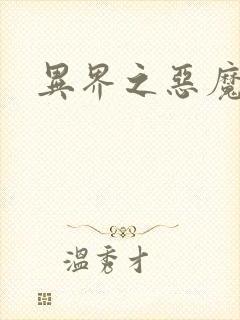 異界之惡魔
溫秀才